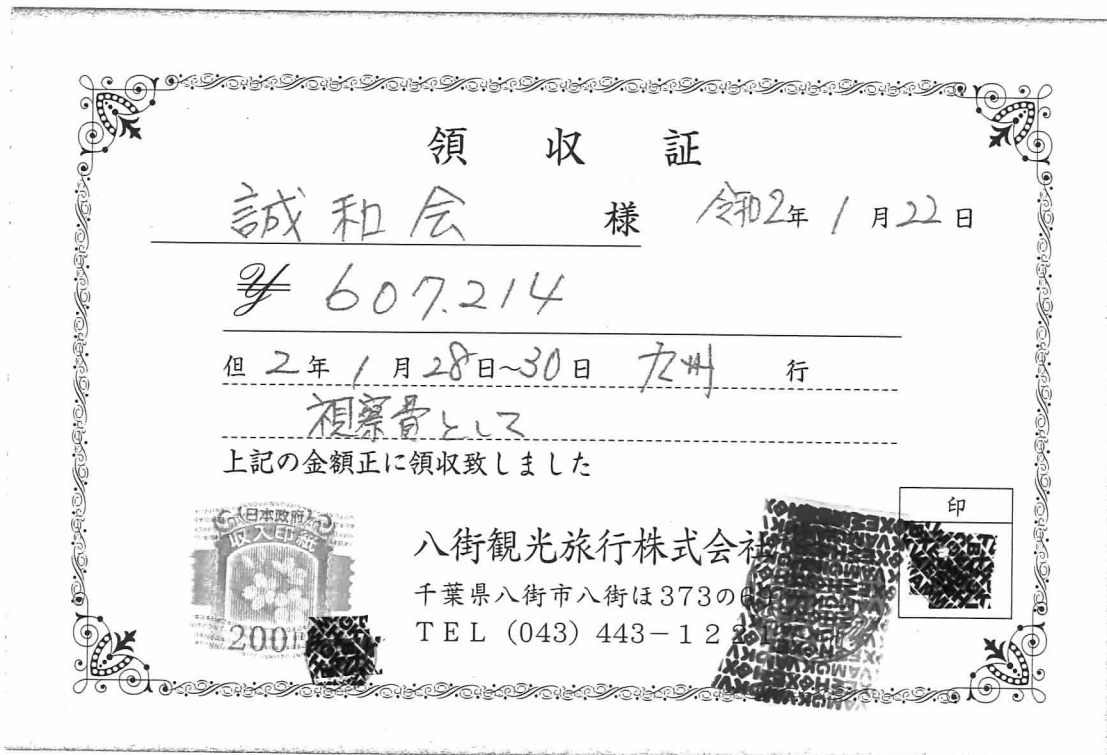 領収証
誠和会 様 令和2年1月22日
¥ 607.214
但 2年1月28日~30日 九州 行
視察費として
上記の金額正に領収致しました
日本政府
収入印紙
200
印
八街観光旅行株式会社
千葉県八街市八街ほ373の
TEL (043) 443-12